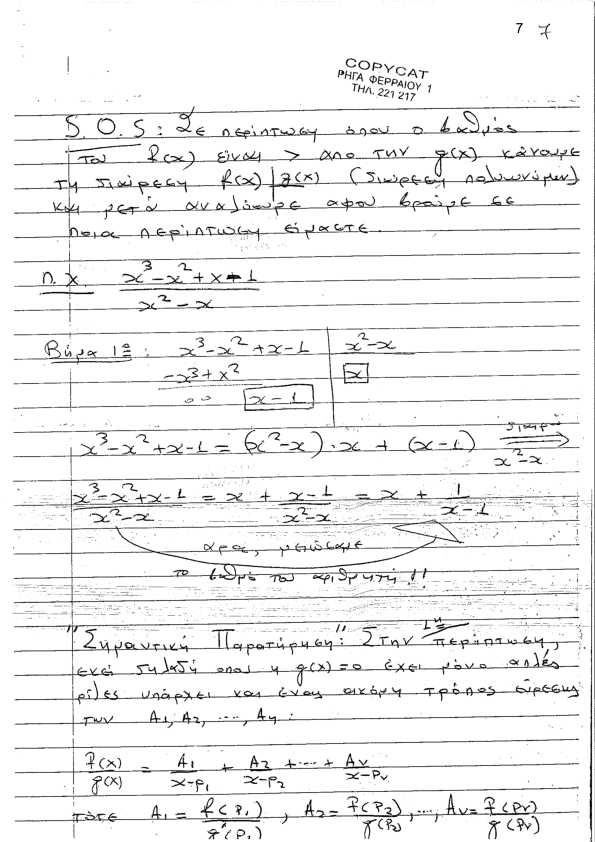 7 7
COPYCAT
ΡΗΓΑ ΦΕΡΡΑΙΟΥ 1
ΤΗΛ. 221 217
S.O.S: Σε περίπτωση όπου ο βαθμός
του f(x) είναι > από την g(x) κάνουμε
τη διαίρεση f(x) | g(x) (διαίρεση πολυωνύμων)
και μετά αναλύουμε αφού βρούμε σε
ποια περίπτωση είμαστε.
π.χ. (x³-x²+x-1)/(x²-x)
Βήμα 1º: x³-x²+x-1 | x²-x
-x³+x² | x
00 x-1
x³-x²+x-1 = (x²-x)·x + (x-1) διαιρώ ⟹ x²-x
(x³-x²+x-1)/(x²-x) = x + (x-1)/(x²-x) = x + 1/(x-1)
άρα, μειώσαμε
το βαθμό του αριθμητή!!
"Σημαντική Παρατήρηση": Στην 1η περίπτωση,
εκεί δηλαδή όπου η g(x)=0 έχει μόνο απλές
ρίζες υπάρχει και ένας ακόμη τρόπος εύρεσης
των A₁, A₂, ...., Aν:
f(x)/g(x) = A₁/(x-ρ₁) + A₂/(x-ρ₂) +....+ Aν/(x-ρν)
τότε A₁ = f(ρ₁)/g'(ρ₁), A₂ = f(ρ₂)/g'(ρ₂), ...., Aν = f(ρν)/g'(ρν)